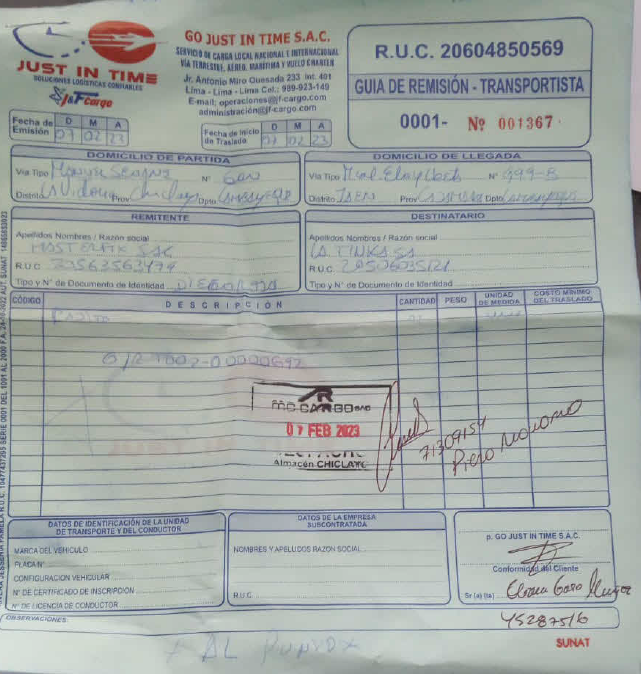 JUST IN TIME
SOLUCIONES LOGISTICAS CONFIABLES
J&F cargo
GO JUST IN TIME S.A.C.
SERVICIO DE CARGA LOCAL NACIONAL E INTERNACIONAL
VÍA TERRESTRE, AÉREO, MARÍTIMA Y VUELO CHARTER
Jr. Antonio Miro Quesada 233 Int. 401
Lima - Lima - Lima Cel.: 989-923-149
E-mail: operaciones@jf-cargo.com
administración@jf-cargo.com
R.U.C. 20604850569
GUIA DE REMISIÓN - TRANSPORTISTA
0001- Nº 001367
Fecha de Emisión D M A
07 02 23
Fecha de Inicio de Traslado D M A
07 02 23
DOMICILIO DE PARTIDA
Vía Tipo Nº 600
Distrito La Victoria Prov Chiclayo Dpto Lambayeque
DOMICILIO DE LLEGADA
Vía Tipo Nº 999-B
Distrito JAEN Prov Dpto
REMITENTE
Apellidos Nombres / Razón social
SAC
R.U.C 20563563474
Tipo y N° de Documento de Identidad
DESTINATARIO
Apellidos Nombres / Razón social
LA TINKA SA
R.U.C 20506035121
Tipo y N° de Documento de Identidad
CÓDIGO DESCRIPCIÓN CANTIDAD PESO UNIDAD DE MEDIDA COSTO MÍNIMO DEL TRASLADO
G/R T002-00000692
MC CARGO SAC
07 FEB 2023
Almacén CHICLAYO
71309154
Piero
DATOS DE IDENTIFICACIÓN DE LA UNIDAD DE TRANSPORTE Y DEL CONDUCTOR
MARCA DEL VEHICULO
PLACA Nº
CONFIGURACION VEHICULAR
N° DE CERTIFICADO DE INSCRIPCIÓN
N° DE LICENCIA DE CONDUCTOR
DATOS DE LA EMPRESA SUBCONTRATADA
NOMBRES Y APELLIDOS RAZÓN SOCIAL
R.U.C.
p. GO JUST IN TIME S.A.C.
Conformidad del Cliente
Sr (a) (ita)
45287516
OBSERVACIONES:
SUNAT